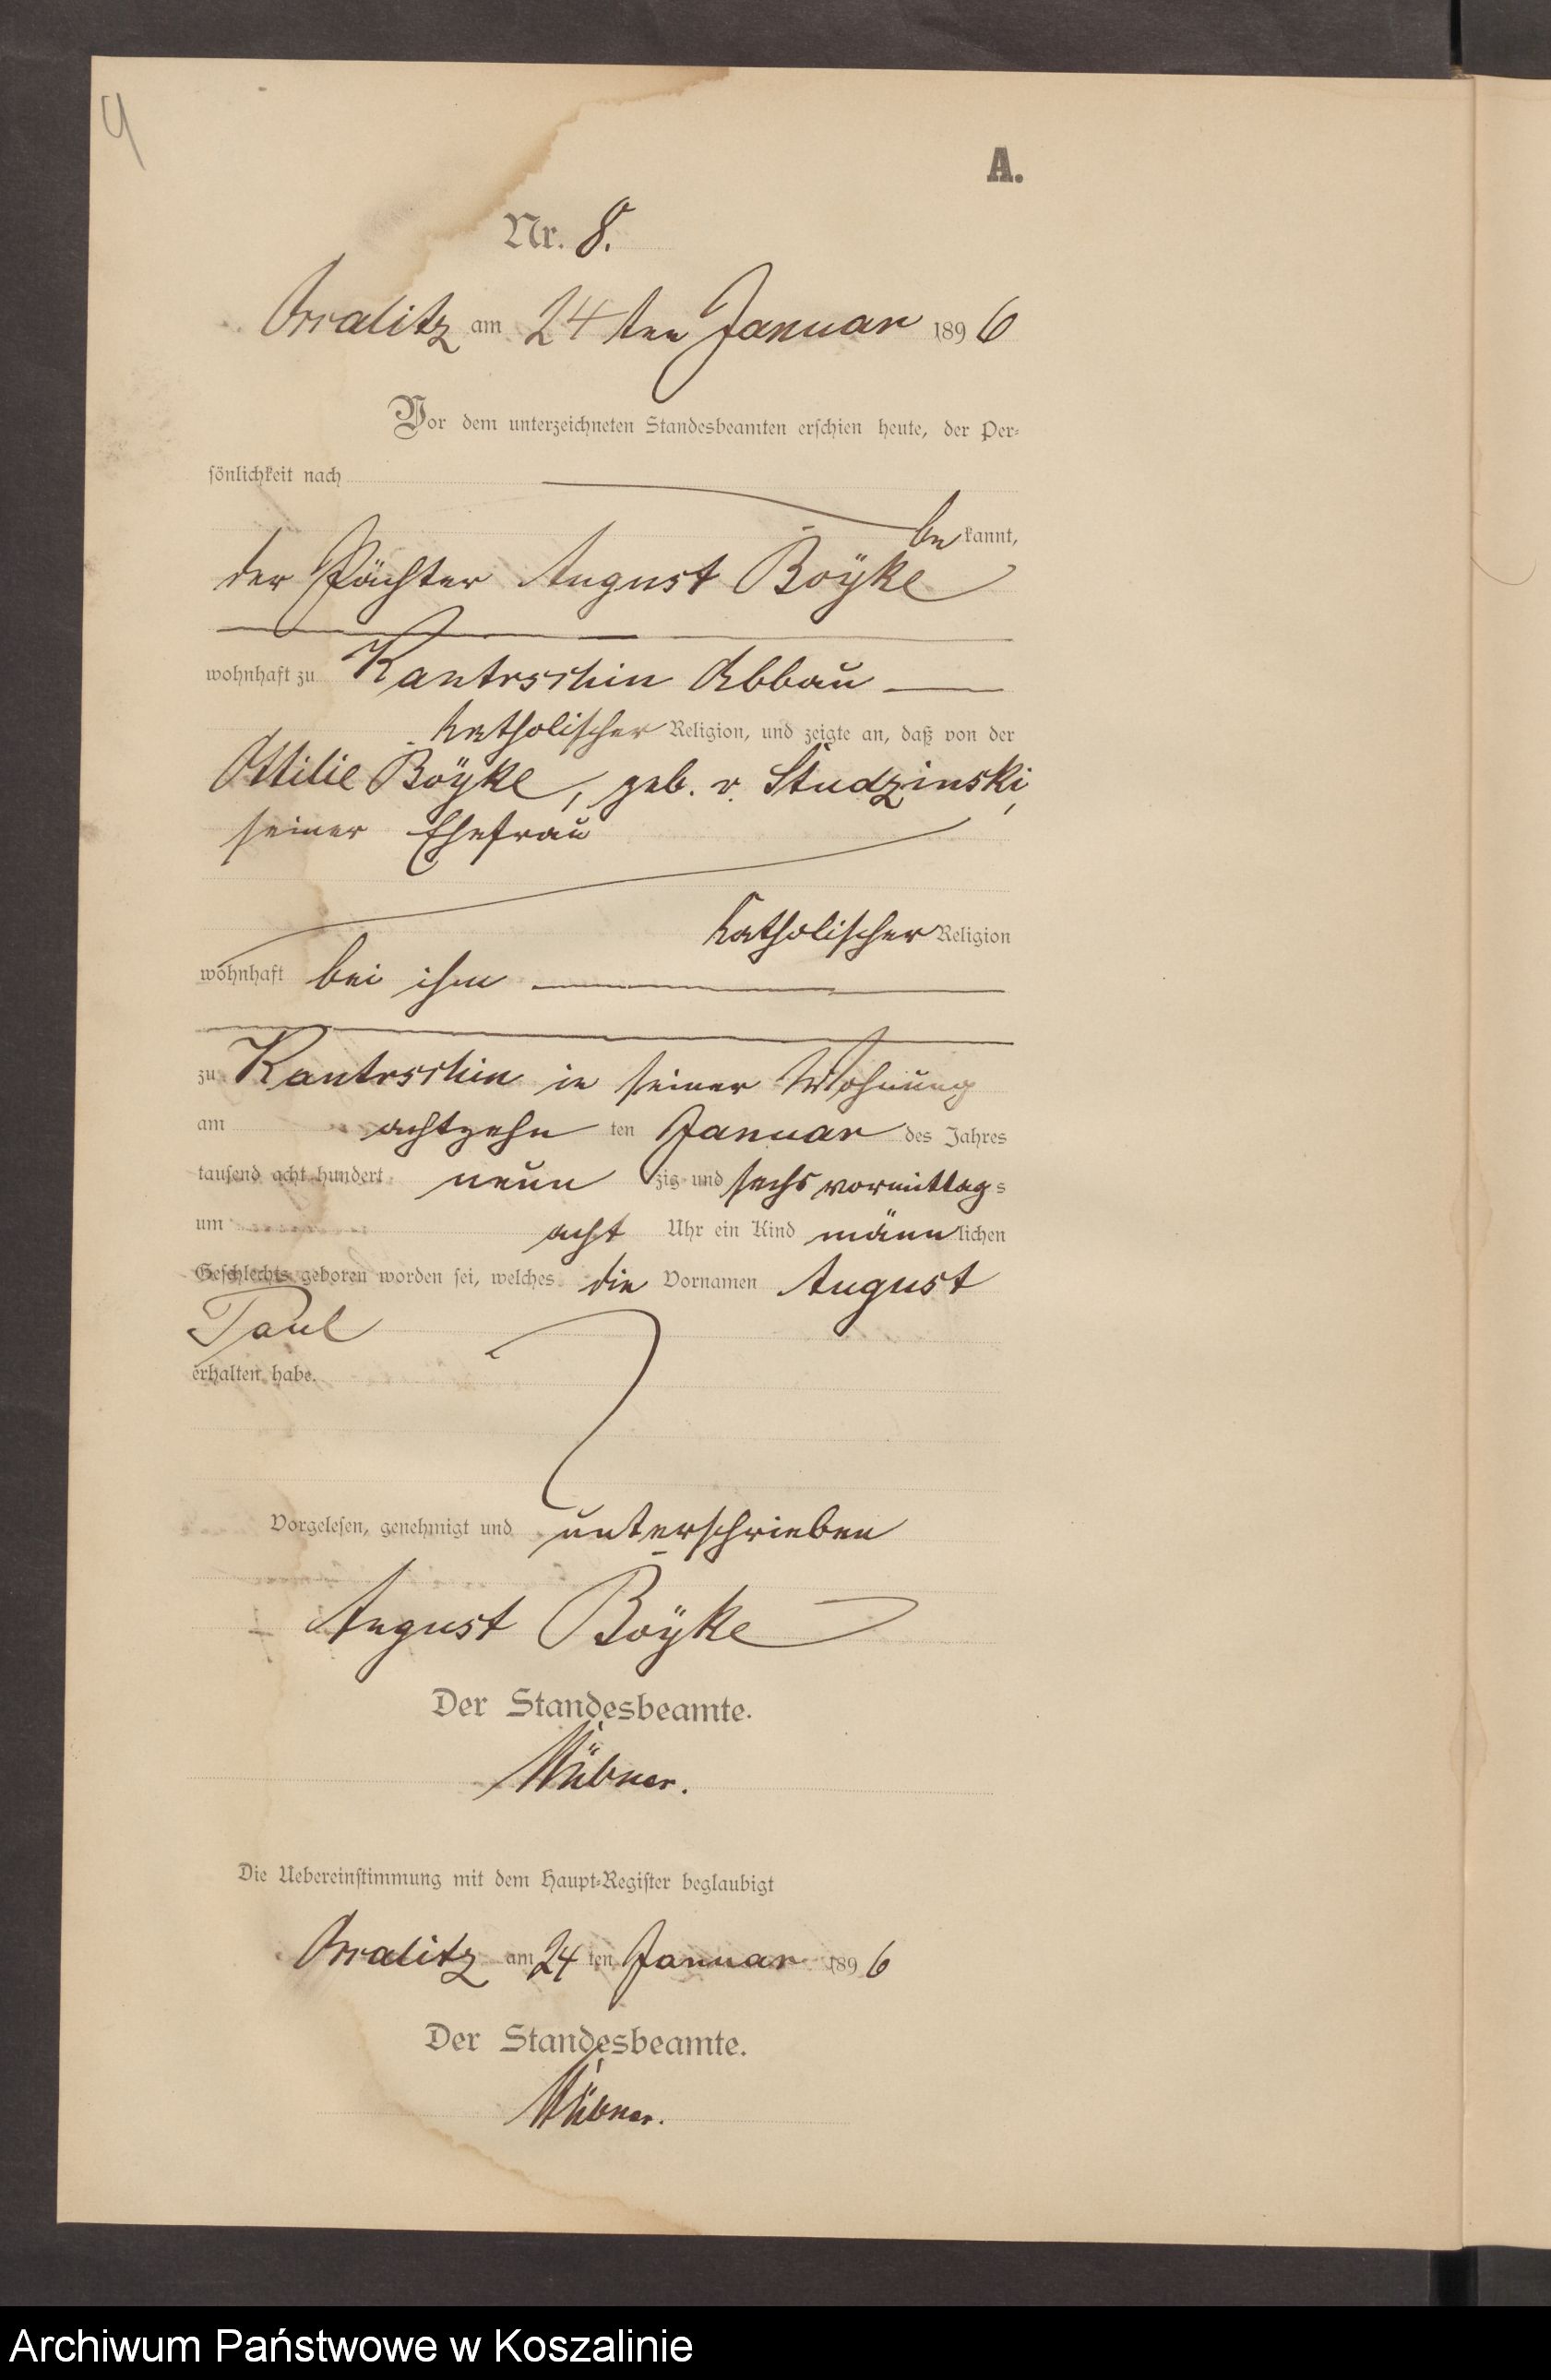 9
A.
Nr. 8.
am 24ten Januar 1896
Vor dem unterzeichneten Standesbeamten erschien heute, der Per-
sönlichkeit nach
bekannt,
der Pächter August Böyke
wohnhaft zu Kantrschin Abbau
katholischer Religion, und zeigte an, daß von der
Ottilie Böyke, geb. v. Studzinski,
seiner Ehefrau
katholischer Religion
wohnhaft bei ihm
zu Kantrschin in seiner Wohnung
am achtzehn ten Januar des Jahres
tausend acht hundert neun zig und sechs vormittags
um acht Uhr ein Kind männlichen
Geschlechts geboren worden sei, welches die Vornamen August
Paul
erhalten habe.
Vorgelesen, genehmigt und unterschrieben
August Böyke
Der Standesbeamte.
Die Uebereinstimmung mit dem Haupt-Register beglaubigt
am 24ten Januar 1896
Der Standesbeamte.
Archiwum Państwowe w Koszalinie